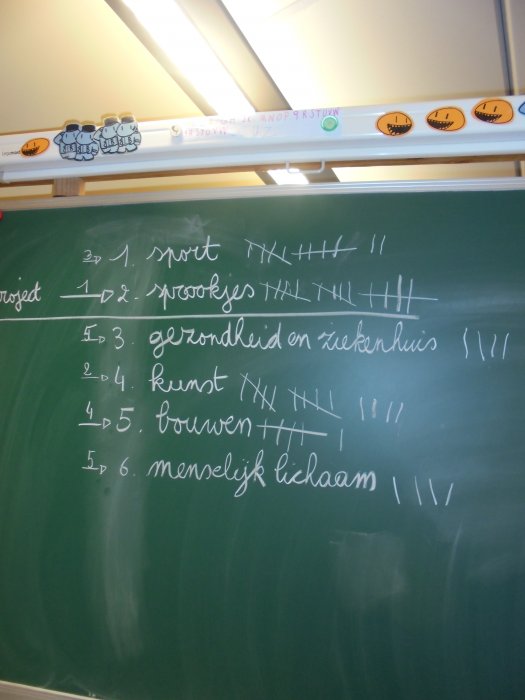 3 1. sport
roject 1 2. sprookjes
5 3. gezondheid en ziekenhuis
2 4. kunst
4 5. bouwen
5 6. menselijk lichaam